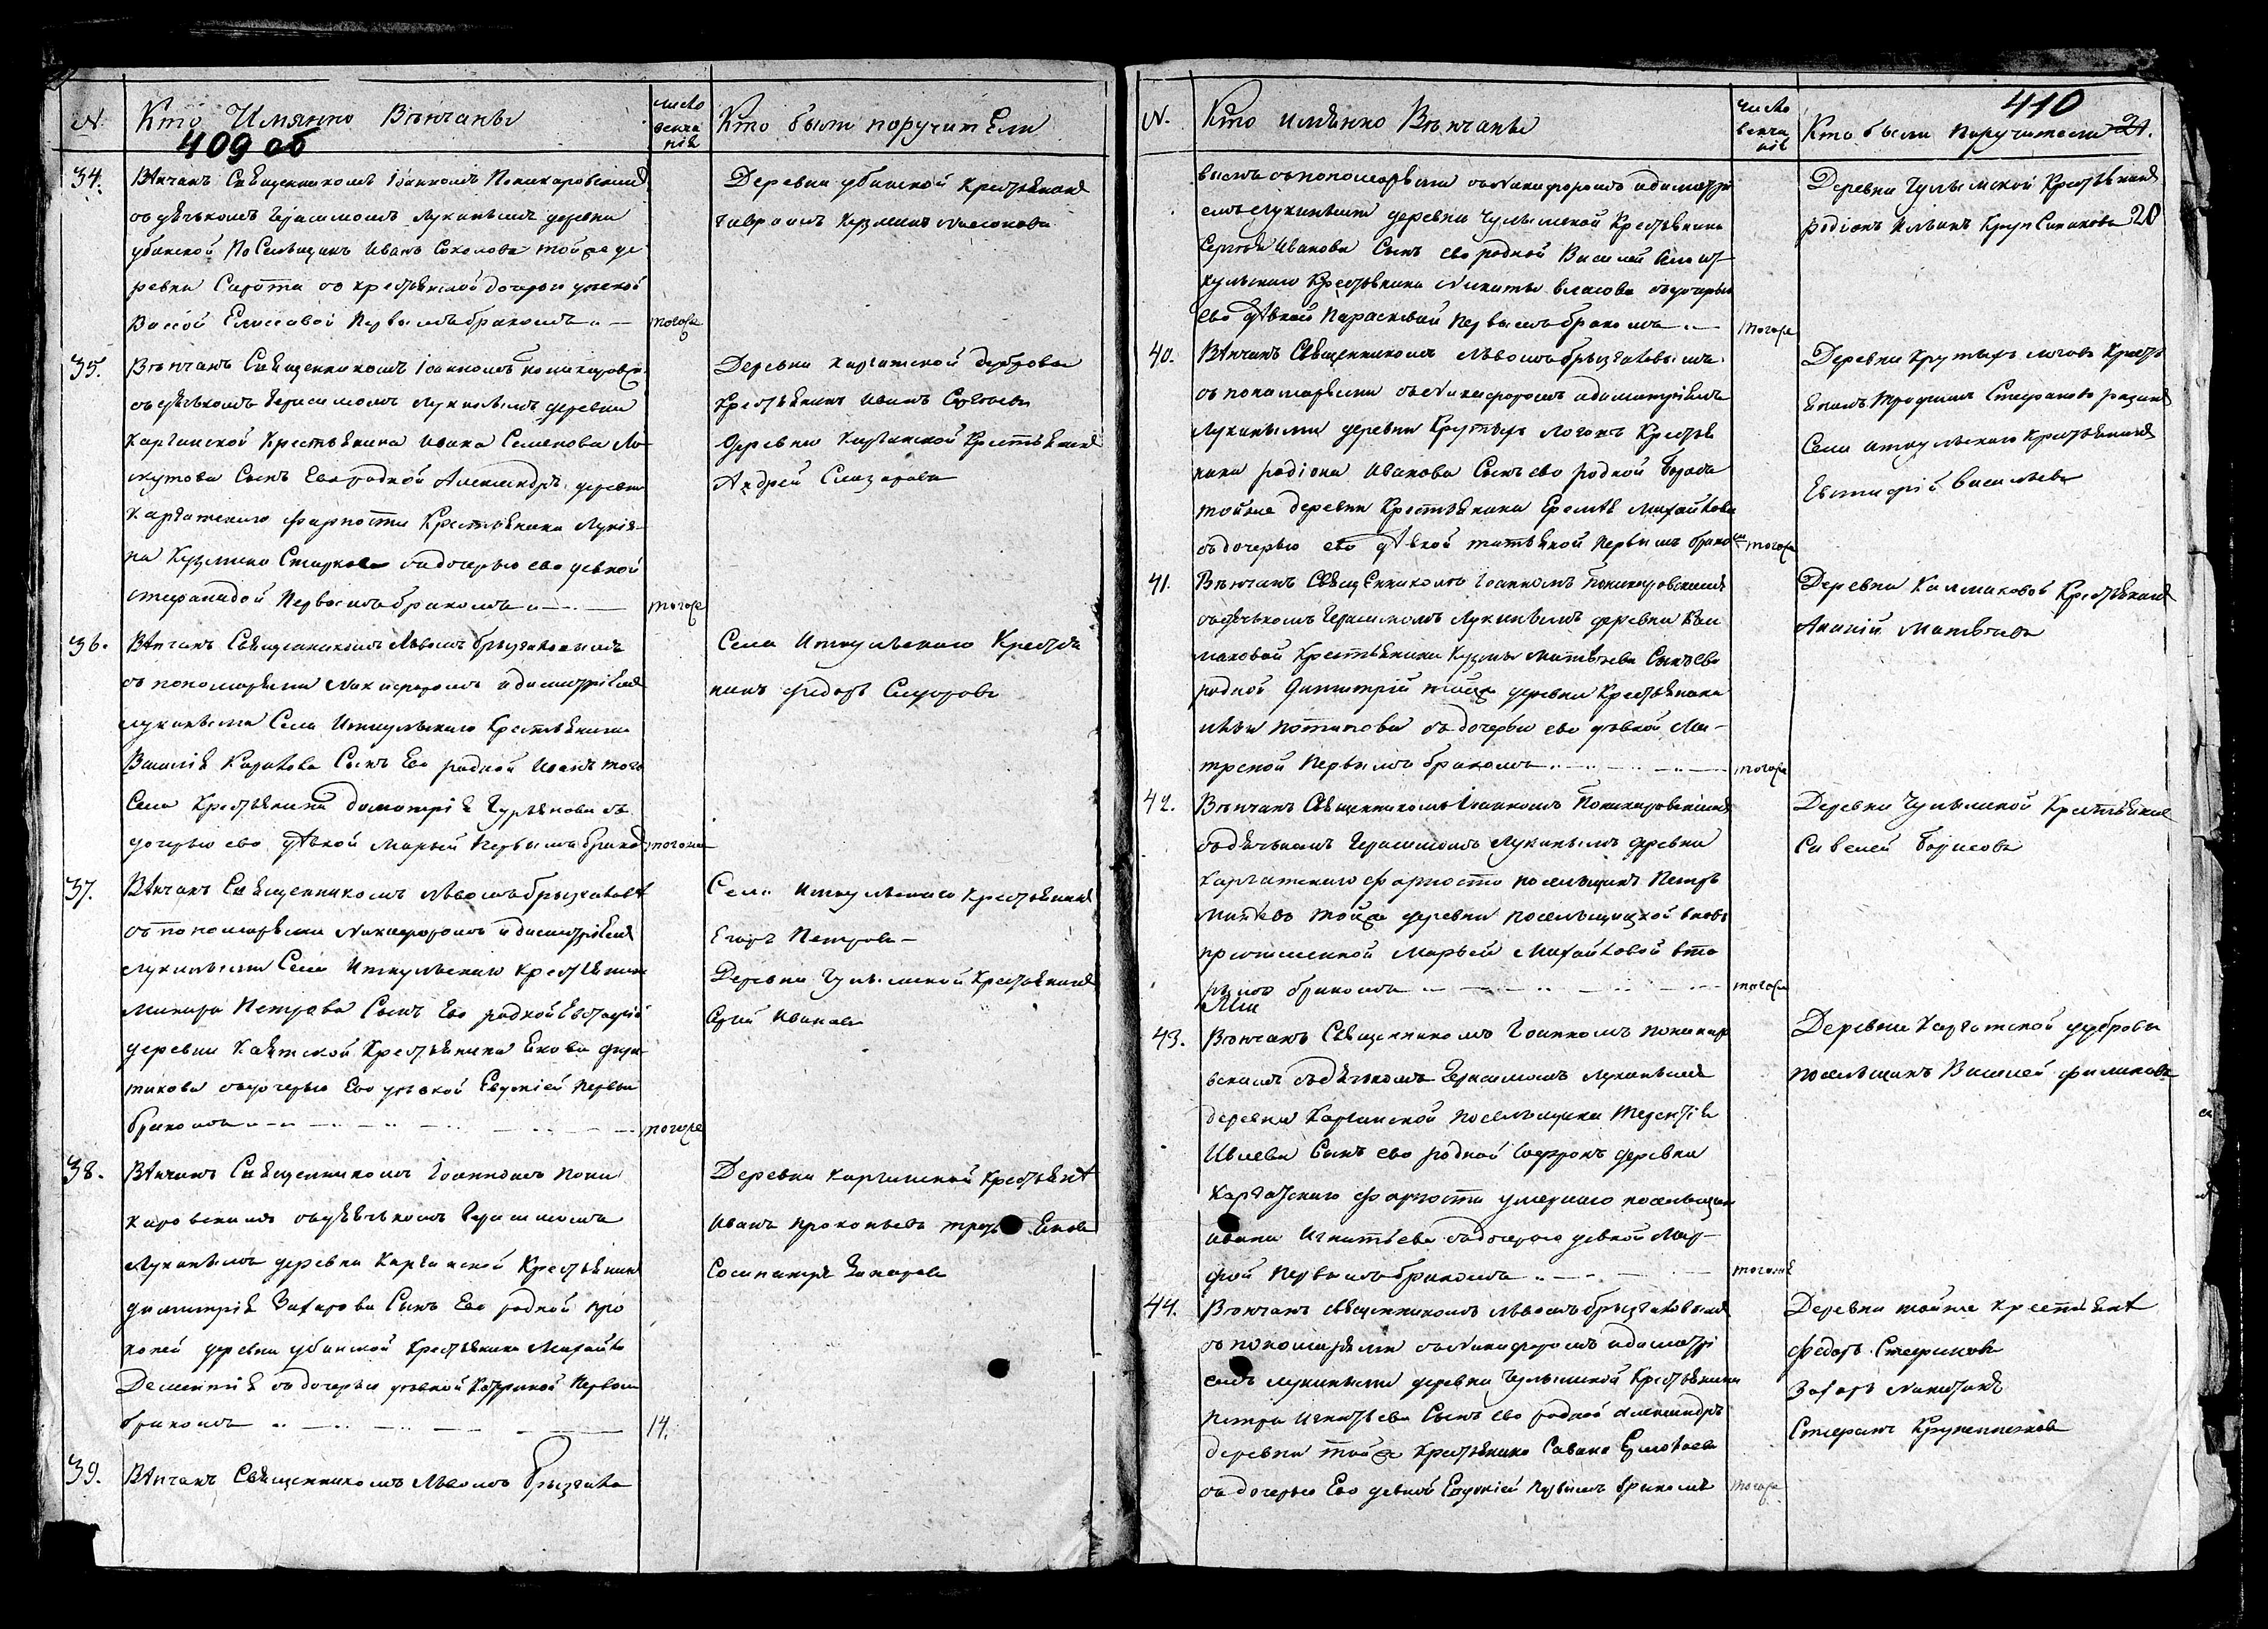 N.
Кто Имянно Венчаны
409 об
число
венча
нiя
Кто были поручители
34.
Венчанъ Священникомъ Iоанномъ Поникаровскимъ
съ дячькомъ Герасимомъ Лукинымъ деревни
убинской Посельщикъ Иванъ Соколовъ тойже де
ревни Сирота крестьянской дочерью девкой
Васой Елисовой Первымъ бракомъ
тогоже
Деревни убинской крестьянинъ
Гавриилъ
35.
Венчанъ Священникомъ Iоанномъ поникаровски
съ дячькомъ Герасимомъ Лукинымъ деревни
Каргатской Крестьянина Ивана Семенова
Сынъ Его родной Александръ деревни
Каргатскаго форпоста Крестьянина
Кузмина съ дочерью ево девкой
степанидой Первымъ бракомъ
тогоже
Деревни Каргатской дубровы
Крестьянинъ Иванъ
деревни Каргатской Крестьянинъ
Андрей
36.
Венчанъ Священникомъ Львомъ брызгаловымъ
съ пономарями Никифоромъ и димитрiемъ
лукиными Села Иткульскаго Крестьянина
Василiя Казакова Сынъ Ево родной Иванъ того
Села Крестьянина димитрiя Гурьянова съ
дочерью ево девкой Марьей Первымъ брако
тогоже
Села Иткульскаго Крестья
нинъ Федоръ Сидоровъ
37.
Венчанъ Священникомъ Львомъ брызгалов
съ пономарями Никифоромъ и димитрiемъ
лукиными Села Иткульскаго крестьянина
Макара Петрова Сынъ Ево родной Евстафiй
деревни Крестьянина Якова
съ дочерью Ево девкой Евдокiей Первы
бракомъ
тогоже
Села Иткульскаго Крестьянинъ
Егоръ Петровъ
Деревни Чулымской Крестьянинъ
Иванов
38.
Венчанъ Священникомъ Iоанномъ пони
каровскимъ съ дячькомъ Герасимомъ
Лукинымъ деревни Каргатской Крестьянина
димитрiя Захарова Сынъ Ево родной про
копей деревни убинской Крестьянина Михайла
Дементiя съ дочерью девкой Катериной Первым
бракомъ
14.
Деревни Каргатской Крестьяне
Иванъ прокопьевъ
Сосипатръ Захаровъ
39.
Венчанъ Священникомъ Львомъ брызгало
N.
Кто имянно Венчаны
число
венча
нiя
410
Кто были Поручители 21.
вымъ съ пономарями съ Никифоромъ и димитрi
емъ Лукиными деревни Чулымской Крестьянина
Сергея Иванова Сынъ ево родной Василей Села ит
кульскаго Крестьянина Никиты Власова съ дочерью
Ево девкой Парасковьей Первымъ бракомъ
тогоже
Деревни Чулымской Крестьянинъ
родiонъ 20
40.
Венчанъ Священникомъ Львомъ брызгаловымъ
съ пономарями съ Никифоромъ и димитрiемъ
Лукиными деревни Крутыхъ логовъ Крестья
нина родiона Иванова Сынъ ево родной
тойже деревни Крестьянина Михайлова
съ дочерью ево девкой татьяной Первымъ брако
тогоже
Деревни Крутыхъ логовъ Кресть
янинъ трофимъ Стефановъ
Села иткульскаго крестьянинъ
Васильевъ
41.
Венчанъ Священникомъ Iоанномъ Поникаровскимъ
съ дячькомъ Герасимомъ Лукинымъ деревни Кал
маковой Крестьянина Кузмы Матвеева Сынъ ево
родной Димитрiй тойже деревни Крестьянина
потапова съ дочерью ево девкой Ма
треной Первымъ бракомъ
тогоже
Деревни Калмаковой Крестьянинъ
Ананiй Матвеевъ
42.
Венчанъ Священникомъ Iоанномъ Поникаровскимъ
съ дячькомъ Герасимомъ Лукинымъ деревни
Каргатскаго форпоста посельщикъ Петръ
тойже деревни посельщицкой вновь
причисленной Марьей Михайловой вто
рымъ бракомъ
тогоже
Деревни Чулымской Крестьянинъ
Савелей Борисовъ
43.
Венчанъ Священникомъ Iоанномъ поникар
вскимъ съ дячькомъ Герасимомъ Лукинымъ
деревни Каргатской посельщика терентiя
Сынъ ево родной Софронъ деревни
Каргатскаго форпоста умершаго посельщик
ивана Игнатьева съ дочерью девкой Мар
фой Первымъ бракомъ
тогоже
Деревни Каргатской дубровы
посельщикъ Василей филиповъ
44.
Венчанъ священникомъ львомъ брызгаловымъ
съ пономарями съ Никифоромъ и димитрi
емъ лукиными деревни Чулымской Крестьянина
Петра Игнатьева Сынъ ево родной александръ
деревни тойже Крестьянина Савина Ермолаева
съ дочерью Ево девкой Евдокiей Первымъ бракомъ
тогоже
Деревни тойже крестьяне
федоръ Стефановъ
Захаръ Никитинъ
Стефанъ